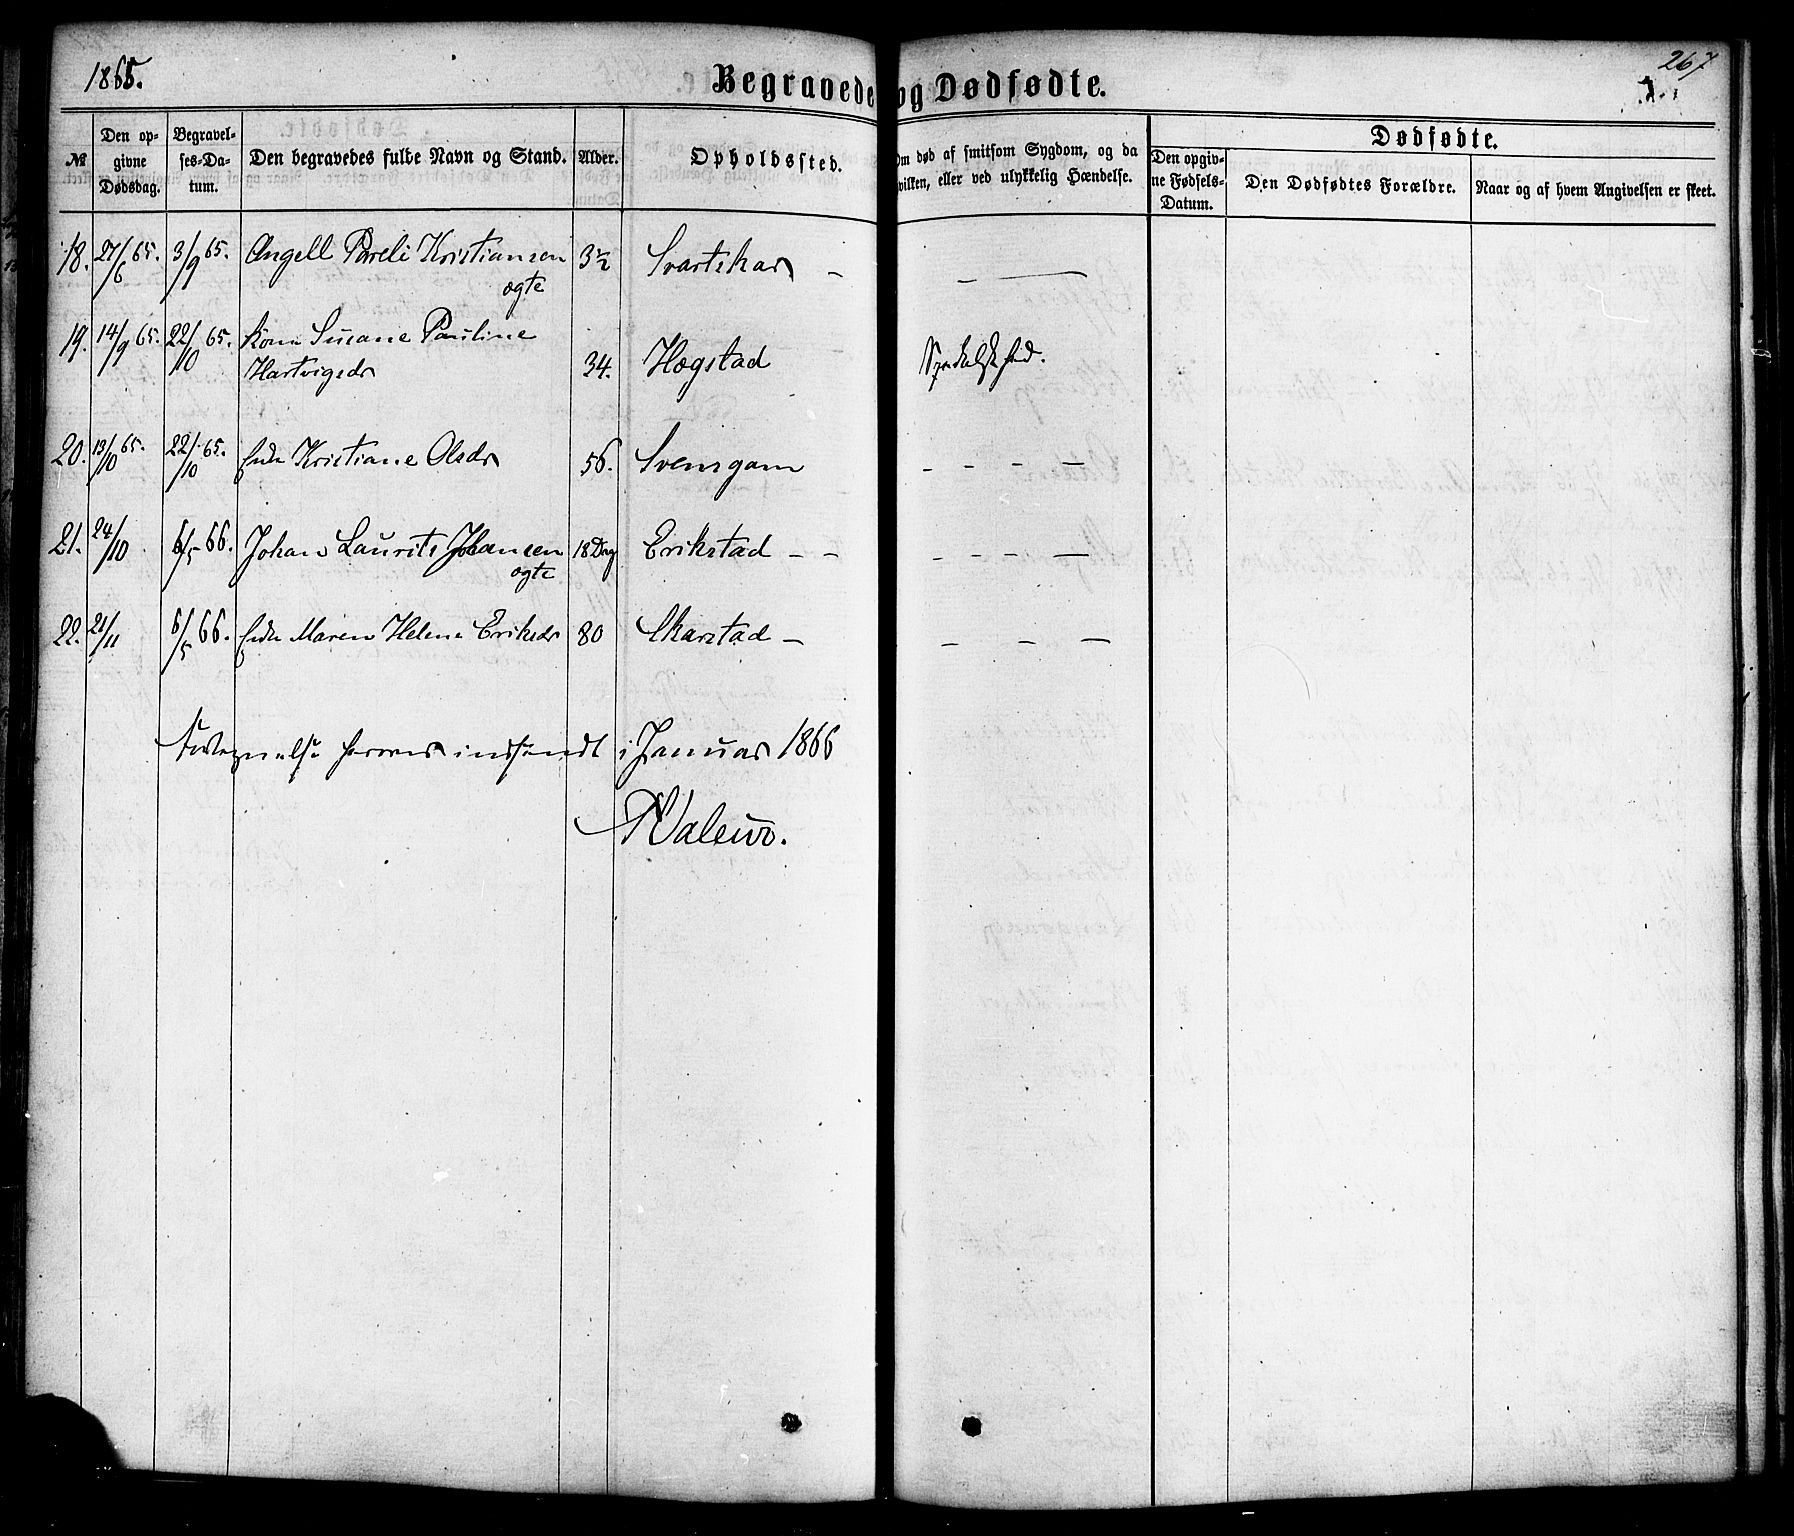 1865.
267
Begravede og Dødfødte.
№
Den op-
givne
Dødsdag.
Begravel-
ses-Da-
tum.
Den begravedes fulde Navn og Stand.
Alder.
Opholdssted.
Om død af smitsom Sygdom, og da
hvilken, eller ved ulykkelig Hændelse.
Dødfødte.
Den opgiv-
ne Fødsels-
Datum.
Den Dødfødtes Forældre.
Naar og af hvem Angivelsen er skeet.
18. 27/6 65. 3/9 65. Angell Pareli Kristiansen 3½ Svartskar – – —
ægte
19. 14/9 65. 22/10 65. Kone Susane Pauline
Hartvigsdr 34. Hægstad Spedalskhed.
20. 13/10 65. 22/10 65. Enke Kristiane Olsdr 56. Svensgam – – – –
21. 24/10 6/5 66. Johan Laurits Johansen 18 Dag Erikstad – – – – – —
ægte
22. 21/11 6/5 66. Enke Maren Helene Eriksdr 80 Skarstad – – – —
Fortegnelse herover indsendt i Januar 1866